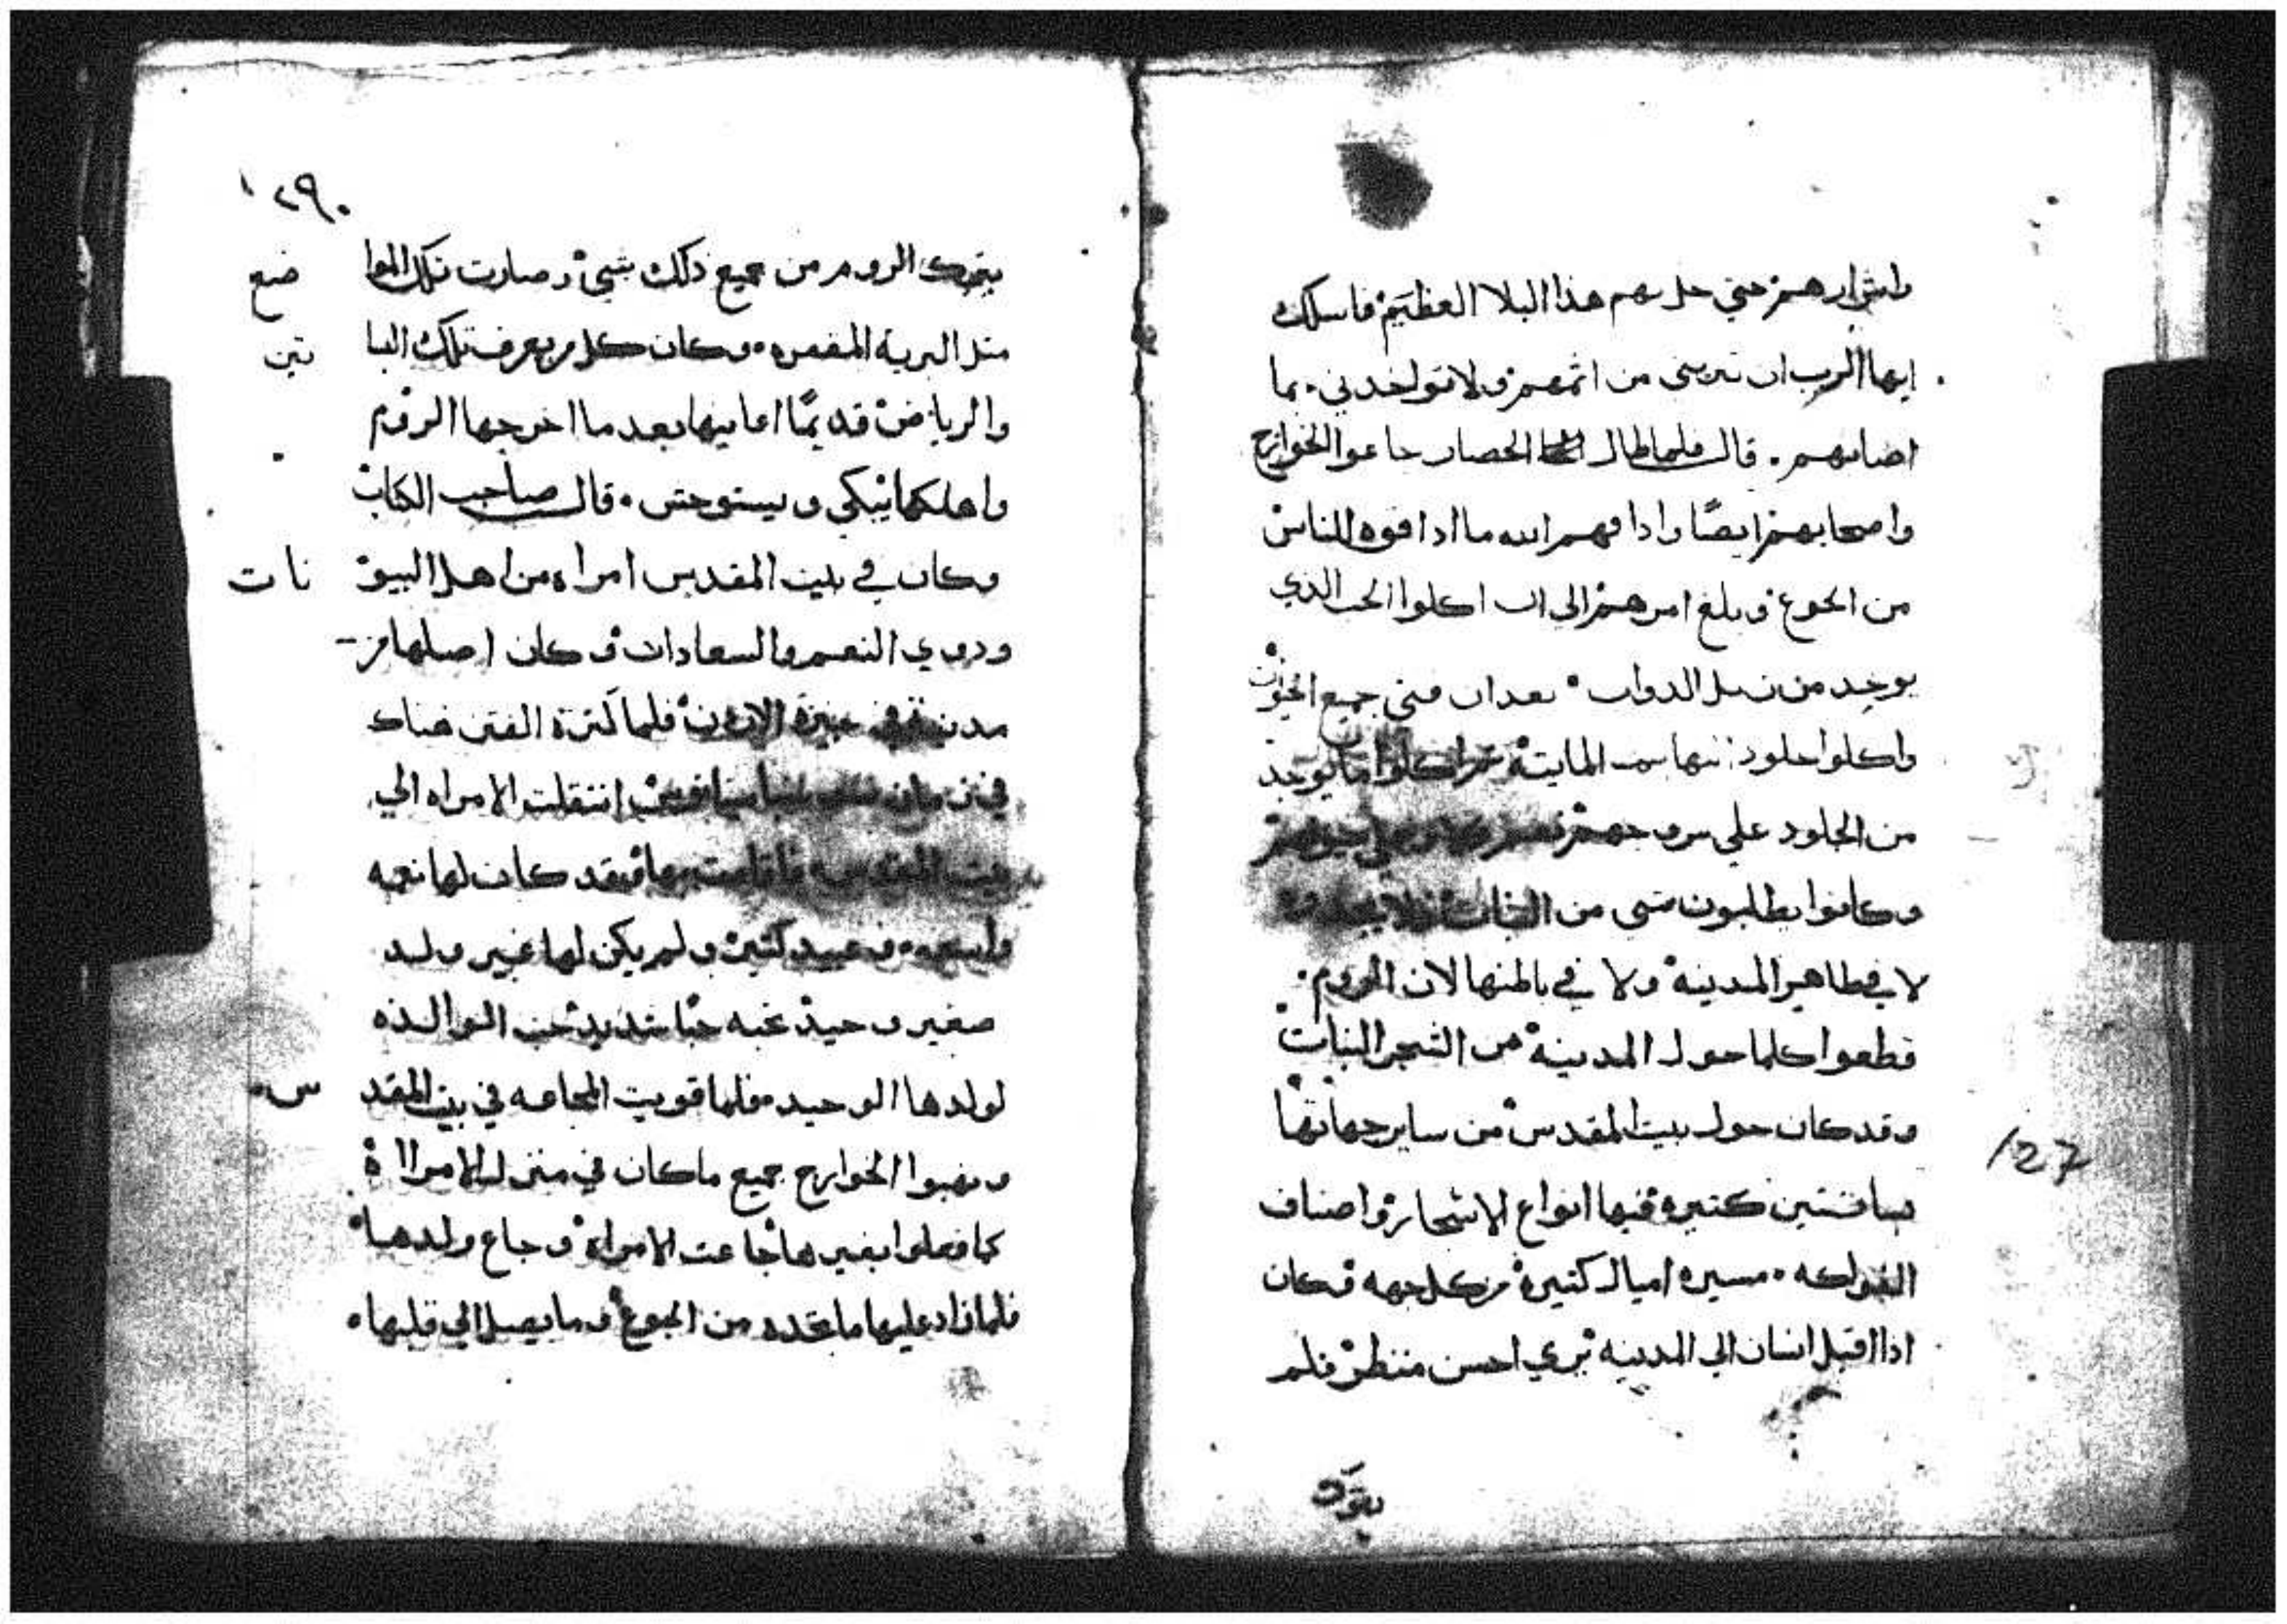 واشرارهم حتي حل بهم هذا البلا العظيم فاسلك
ايها الرب ان تبريني من اثمهم ولا تواخدني بما
اصابهم . قال فلما طال الحصار جاعوا الخوارج
واصحابهم ايضًا واداقهم الله ما اداقوه للناس
من الجوع وبلغ امرهم الى ان اكلوا الحب الذي
يوجد من زبل الدواب بعد ان فني جميع الحيوان
واكلوا جلود المايته ما يوجد
من الجلود علي سروجهم
وكانوا يطلبون شي من النبات
لا في ظاهر المدينه ولا في باطنها لان الروم
قطعوا كلما حول المدينه من الشجر النبات
وقد كان حول بيت المقدس من ساير جهاتها
بساتين كتيره فيها انواع الاشجار واصناف
الفواكه مسيره اميال كتيره من كل جهه وكان
ادا اقبل انسان الي المدينه يري احسن منظر فلم
يترك
127
١٢٩٠
يترك الروم من جميع ذلك شيء وصارت تلك المواضع
متل البريه المقفره وكان كل من يعرف تلك البساتين
والرياض قديمًا اعاينها بعد ما اخرجها الروم
واهلكها يبكي ويستوحش . قال صاحب الكتاب
وكان في بيت المقدس امراه من اهل البيوتات
ودوي النعم والسعادات وكان اصلها من
مدينة في عبرة الاردن فلما كترة الفتن هناك
في زمان انتقلت الامراه الي
بيت المقدس فاقامت بها وقد كان لها نعمه
واسعه وعبيد كتير ولم يكن لها غير ولد
صغير وحيد تحبه حبًا شديد حب الوالده
لولدها الوحيد فلما قويت المجاعه في بيت المقدس
ونهبوا الخوارج جميع ما كان في منزل الامراة
كما فعلوا بغيرها جاعت الامراة وجاع ولدها
فلما زاد عليها ما تجده من الجوع وما يصل الي قلبها